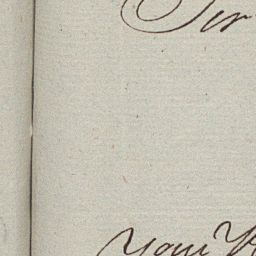 Sir
Your